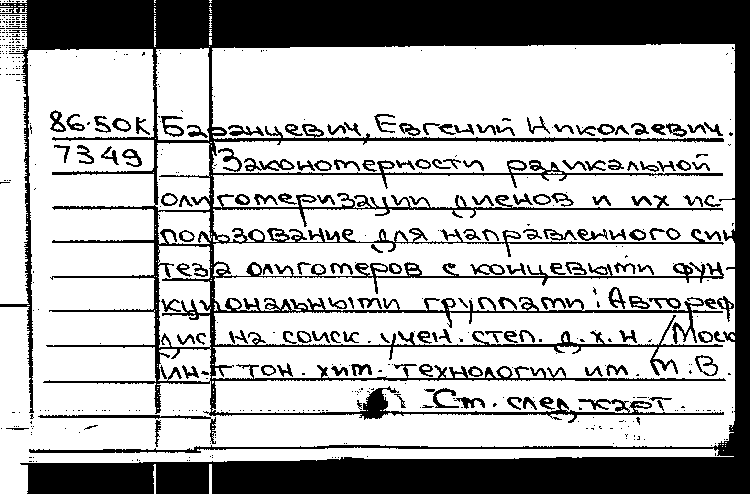 86-50К Баранцевич, Евгений Николаевич.
7349 Закономерности радикальной
олигомеризации диенов и их ис-
пользование для направленного син
теза олигомеров с концевыми фун-
кциональными группами: Автореф
дис на соиск. учен. степ. д.х.н. / Моск
ин-т тон. хим. технологии им. М.В.
См. след. карт.